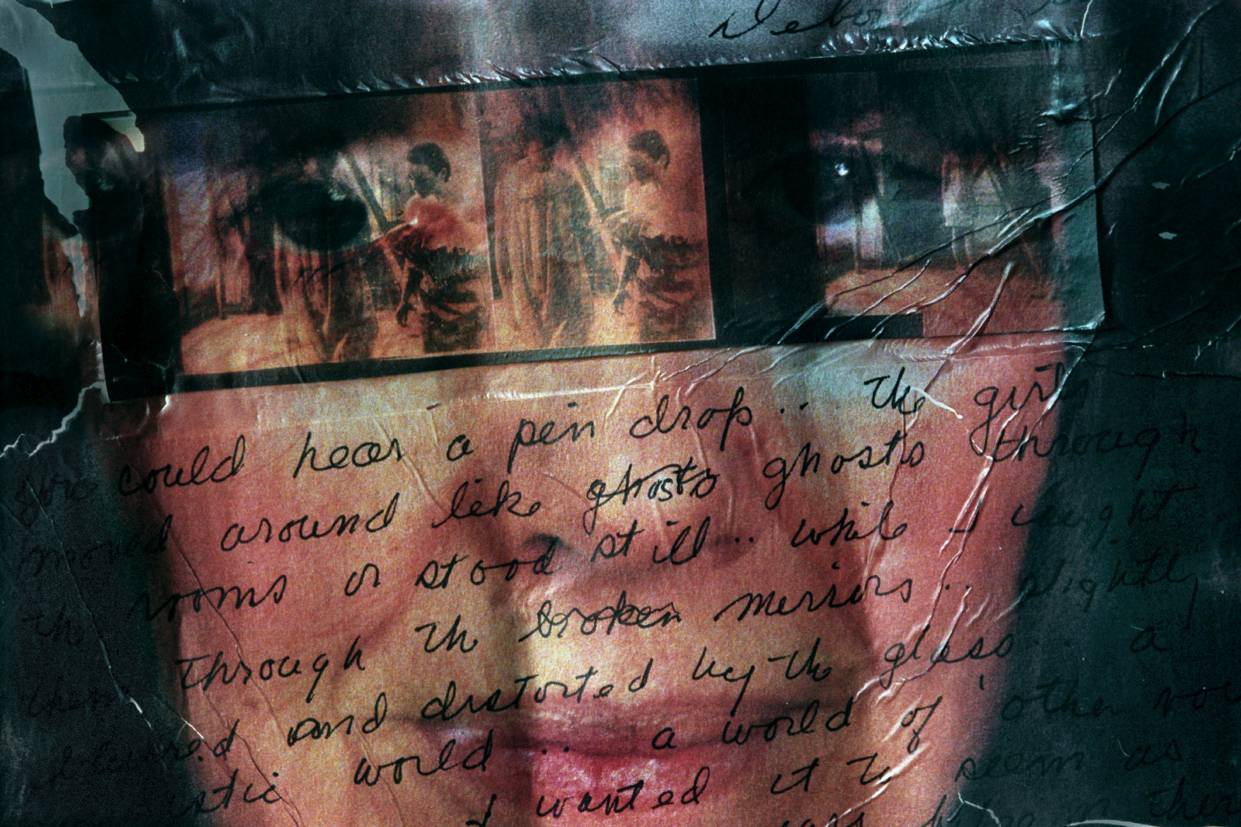 Debo
you could hear a pin drop .. the girls
moved around like ghosts ghosts through
the rooms or stood still .. while I caught
them through the broken mirrors .. slightly
blurred and distorted by the glass .. a
istic world .. a world of 'other
I wanted it to seem as